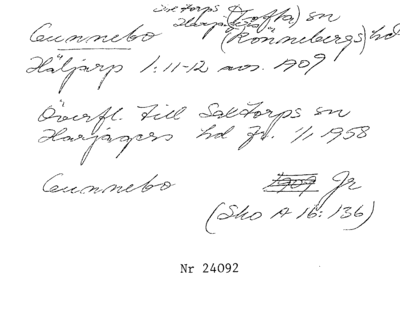 Saxtorps (Tofta) sn
Harjagers
Gunnebo (Rönnebergs) hd
Häljarp 1:11-12 avs. 1909
Överfl. till Saxtorps sn
Harjagers hd fr. 1/1 1958
Gunnebo 1909 Jr
(Sko A 16: 136)
Nr 24092